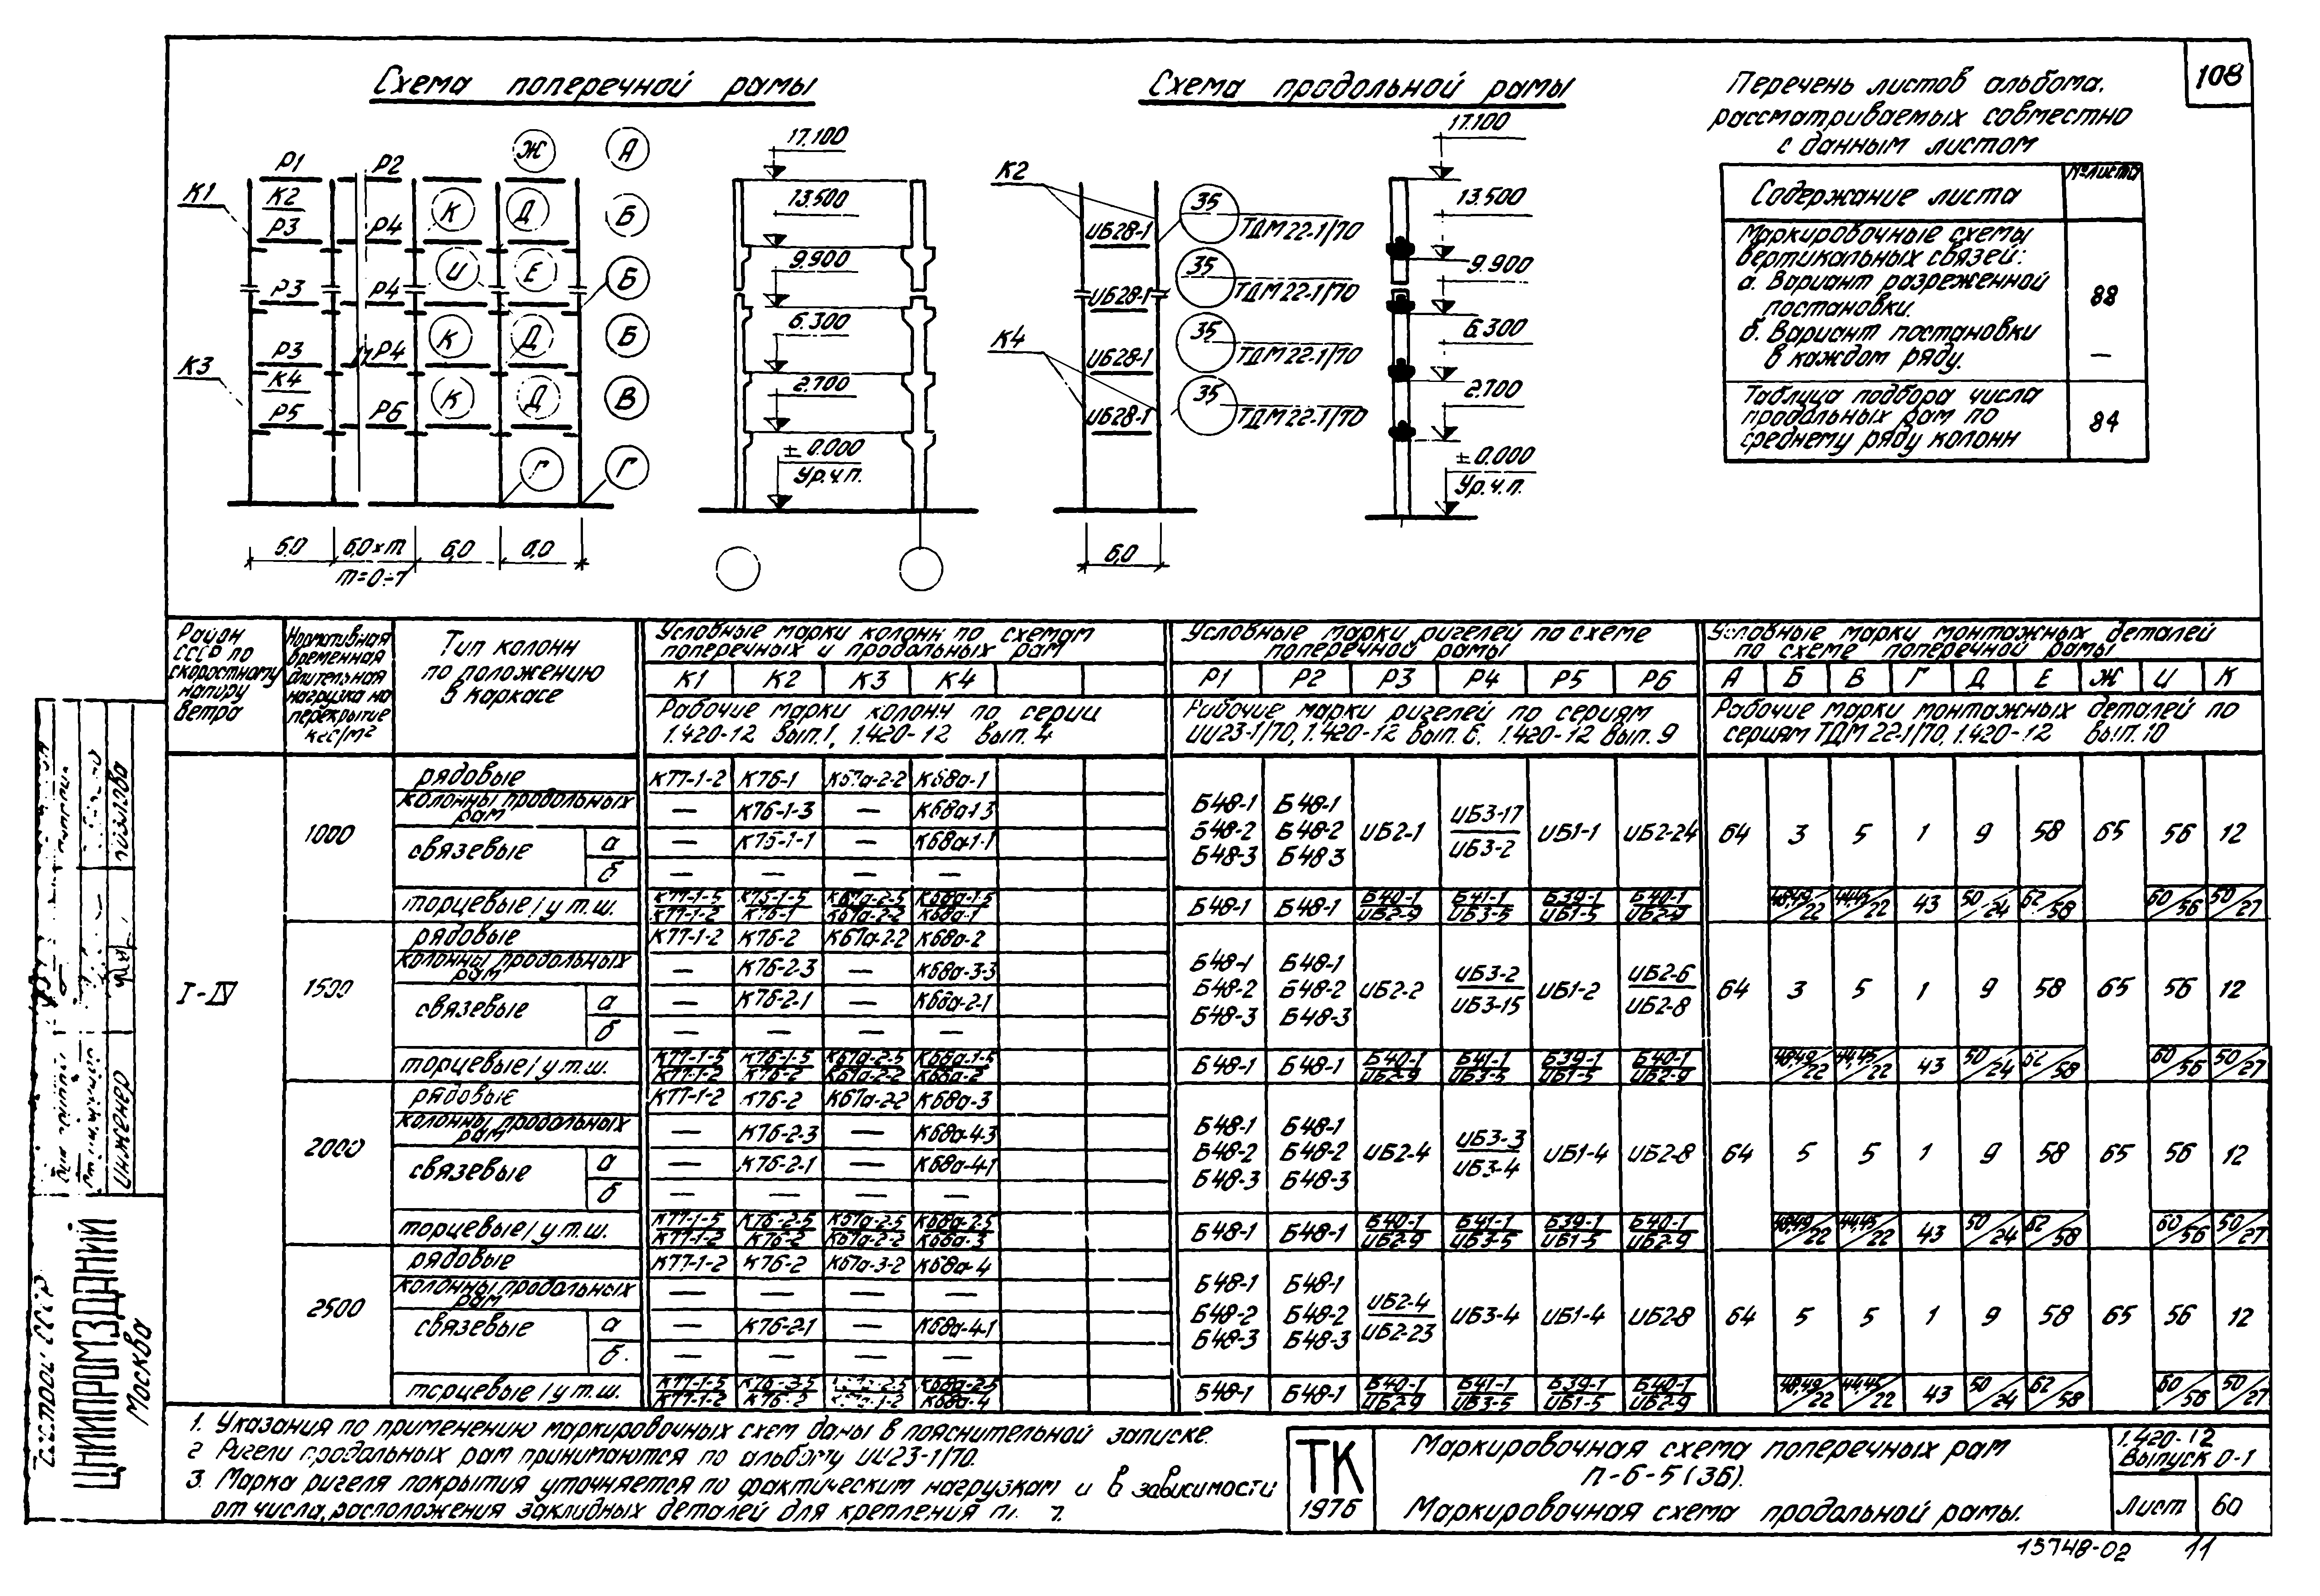 108
Схема поперечной рамы
Схема продольной рамы
Перечень листов альбома,
рассматриваемых совместно
с данным листом
Содержание листа № листа
Маркировочные схемы
вертикальных связей:
а. Вариант разреженной
постановки. 88
б. Вариант постановки
в каждом ряду. —
Таблица подбора числа
продольных рам по
среднему ряду колонн 84
К1 К2 К3 К4
Р1 Р2
Р3 Р4
Р3 Р4
Р3 Р4
Р5 Р6
Ж А
К Д Б
И Е Б
К Д Б
К Д В
Г Г
6,0 6,0×m 6,0 6,0
m=0÷7
17.100
13.500
9.900
6.300
2.700
±0.000
Ур.ч.п.
К2
К4
ИБ28-1 35 ТДМ22-1/70
ИБ28-1 35 ТДМ22-1/70
ИБ28-1 35 ТДМ22-1/70
ИБ28-1 35 ТДМ22-1/70
6,0
17.100
13.500
9.900
6.300
2.700
±0.000
Ур.ч.п.
Район СССР по скоростному напору ветра
Нормативная временная длительная нагрузка на перекрытие кгс/м²
Тип колонн по положению в каркасе
Условные марки колонн по схемам поперечных и продольных рам
К1 К2 К3 К4
Рабочие марки колонн по серии 1.420-12 вып.1, 1.420-12 вып.4
Условные марки ригелей по схеме поперечной рамы
Р1 Р2 Р3 Р4 Р5 Р6
Рабочие марки ригелей по сериям ИИ23-1/70, 1.420-12 вып.6, 1.420-12 вып.9
Условные марки монтажных деталей по схеме поперечной рамы
А Б В Г Д Е Ж И К
Рабочие марки монтажных деталей по сериям ТДМ22-1/70, 1.420-12 вып.10
I-IV
1000
рядовые К77-1-2 К76-1 К67а-2-2 К68а-1
колонны продольных рам — К76-1-3 — К68а-1-3
связевые а — К76-1-1 — К68а-1-1
б — — — —
Б48-1 Б48-2 Б48-3 Б48-1 Б48-2 Б48-3 ИБ2-1 ИБ3-17/ИБ3-2 ИБ1-1 ИБ2-24 64 3 5 1 9 58 65 56 12
торцевые/у т.ш. К77-1-5/К77-1-2 К76-1-5/К76-1 К67а-2-5/К67а-2-2 К68а-1-5/К68а-1 Б48-1 Б48-1 Б40-1/ИБ2-9 Б41-1/ИБ3-5 Б39-1/ИБ1-5 Б40-1/ИБ2-9 48,49/22 44,45/22 43 50/24 62/58 60/56 50/27
1500
рядовые К77-1-2 К76-2 К67а-2-2 К68а-2
колонны продольных рам — К76-2-3 — К68а-3-3
связевые а — К76-2-1 — К68а-2-1
б — — — —
Б48-1 Б48-2 Б48-3 Б48-1 Б48-2 Б48-3 ИБ2-2 ИБ3-2/ИБ3-15 ИБ1-2 ИБ2-6/ИБ2-8 64 3 5 1 9 58 65 56 12
торцевые/у т.ш. К77-1-5/К77-1-2 К76-1-5/К76-2 К67а-2-5/К67а-2-2 К68а-1-5/К68а-2 Б48-1 Б48-1 Б40-1/ИБ2-9 Б41-1/ИБ3-5 Б39-1/ИБ1-5 Б40-1/ИБ2-9 48,49/22 44,45/22 43 50/24 62/58 60/56 50/27
2000
рядовые К77-1-2 К76-2 К67а-2-2 К68а-3
колонны продольных рам — К76-2-3 — К68а-4-3
связевые а — К76-2-1 — К68а-4-1
б — — — —
Б48-1 Б48-2 Б48-3 Б48-1 Б48-2 Б48-3 ИБ2-4 ИБ3-3/ИБ3-4 ИБ1-4 ИБ2-8 64 5 5 1 9 58 65 56 12
торцевые/у т.ш. К77-1-5/К77-1-2 К76-2-5/К76-2 К67а-2-5/К67а-2-2 К68а-2-5/К68а-3 Б48-1 Б48-1 Б40-1/ИБ2-9 Б41-1/ИБ3-5 Б39-1/ИБ1-5 Б40-1/ИБ2-9 48,49/22 44,45/22 43 50/24 62/58 60/56 50/27
2500
рядовые К77-1-2 К76-2 К67а-3-2 К68а-4
колонны продольных рам — — — —
связевые а — К76-2-1 — К68а-4-1
б — — — —
Б48-1 Б48-2 Б48-3 Б48-1 Б48-2 Б48-3 ИБ2-4/ИБ2-23 ИБ3-4 ИБ1-4 ИБ2-8 64 5 5 1 9 58 65 56 12
торцевые/у т.ш. К77-1-5/К77-1-2 К68а-2-5/К68а-4 Б48-1 Б48-1 Б40-1/ИБ2-9 Б41-1/ИБ3-5 Б39-1/ИБ1-5 Б40-1/ИБ2-9 48,49/22 44,45/22 43 50/24 62/58 60/56 50/27
1. Указания по применению маркировочных схем даны в пояснительной записке.
2 Ригели продольных рам принимаются по альбому ИИ23-1/70.
3. Марка ригеля покрытия уточняется по фактическим нагрузкам и в зависимости
от числа, расположения закладных деталей для крепления
ТК
1976
Маркировочная схема поперечных рам
п-6-5 (36).
Маркировочная схема продольной рамы.
1.420-12
Выпуск 0-1
Лист 60
15748-02 11
Госстрой СССР
ЦНИИПРОМЗДАНИЙ
Москва
инженер